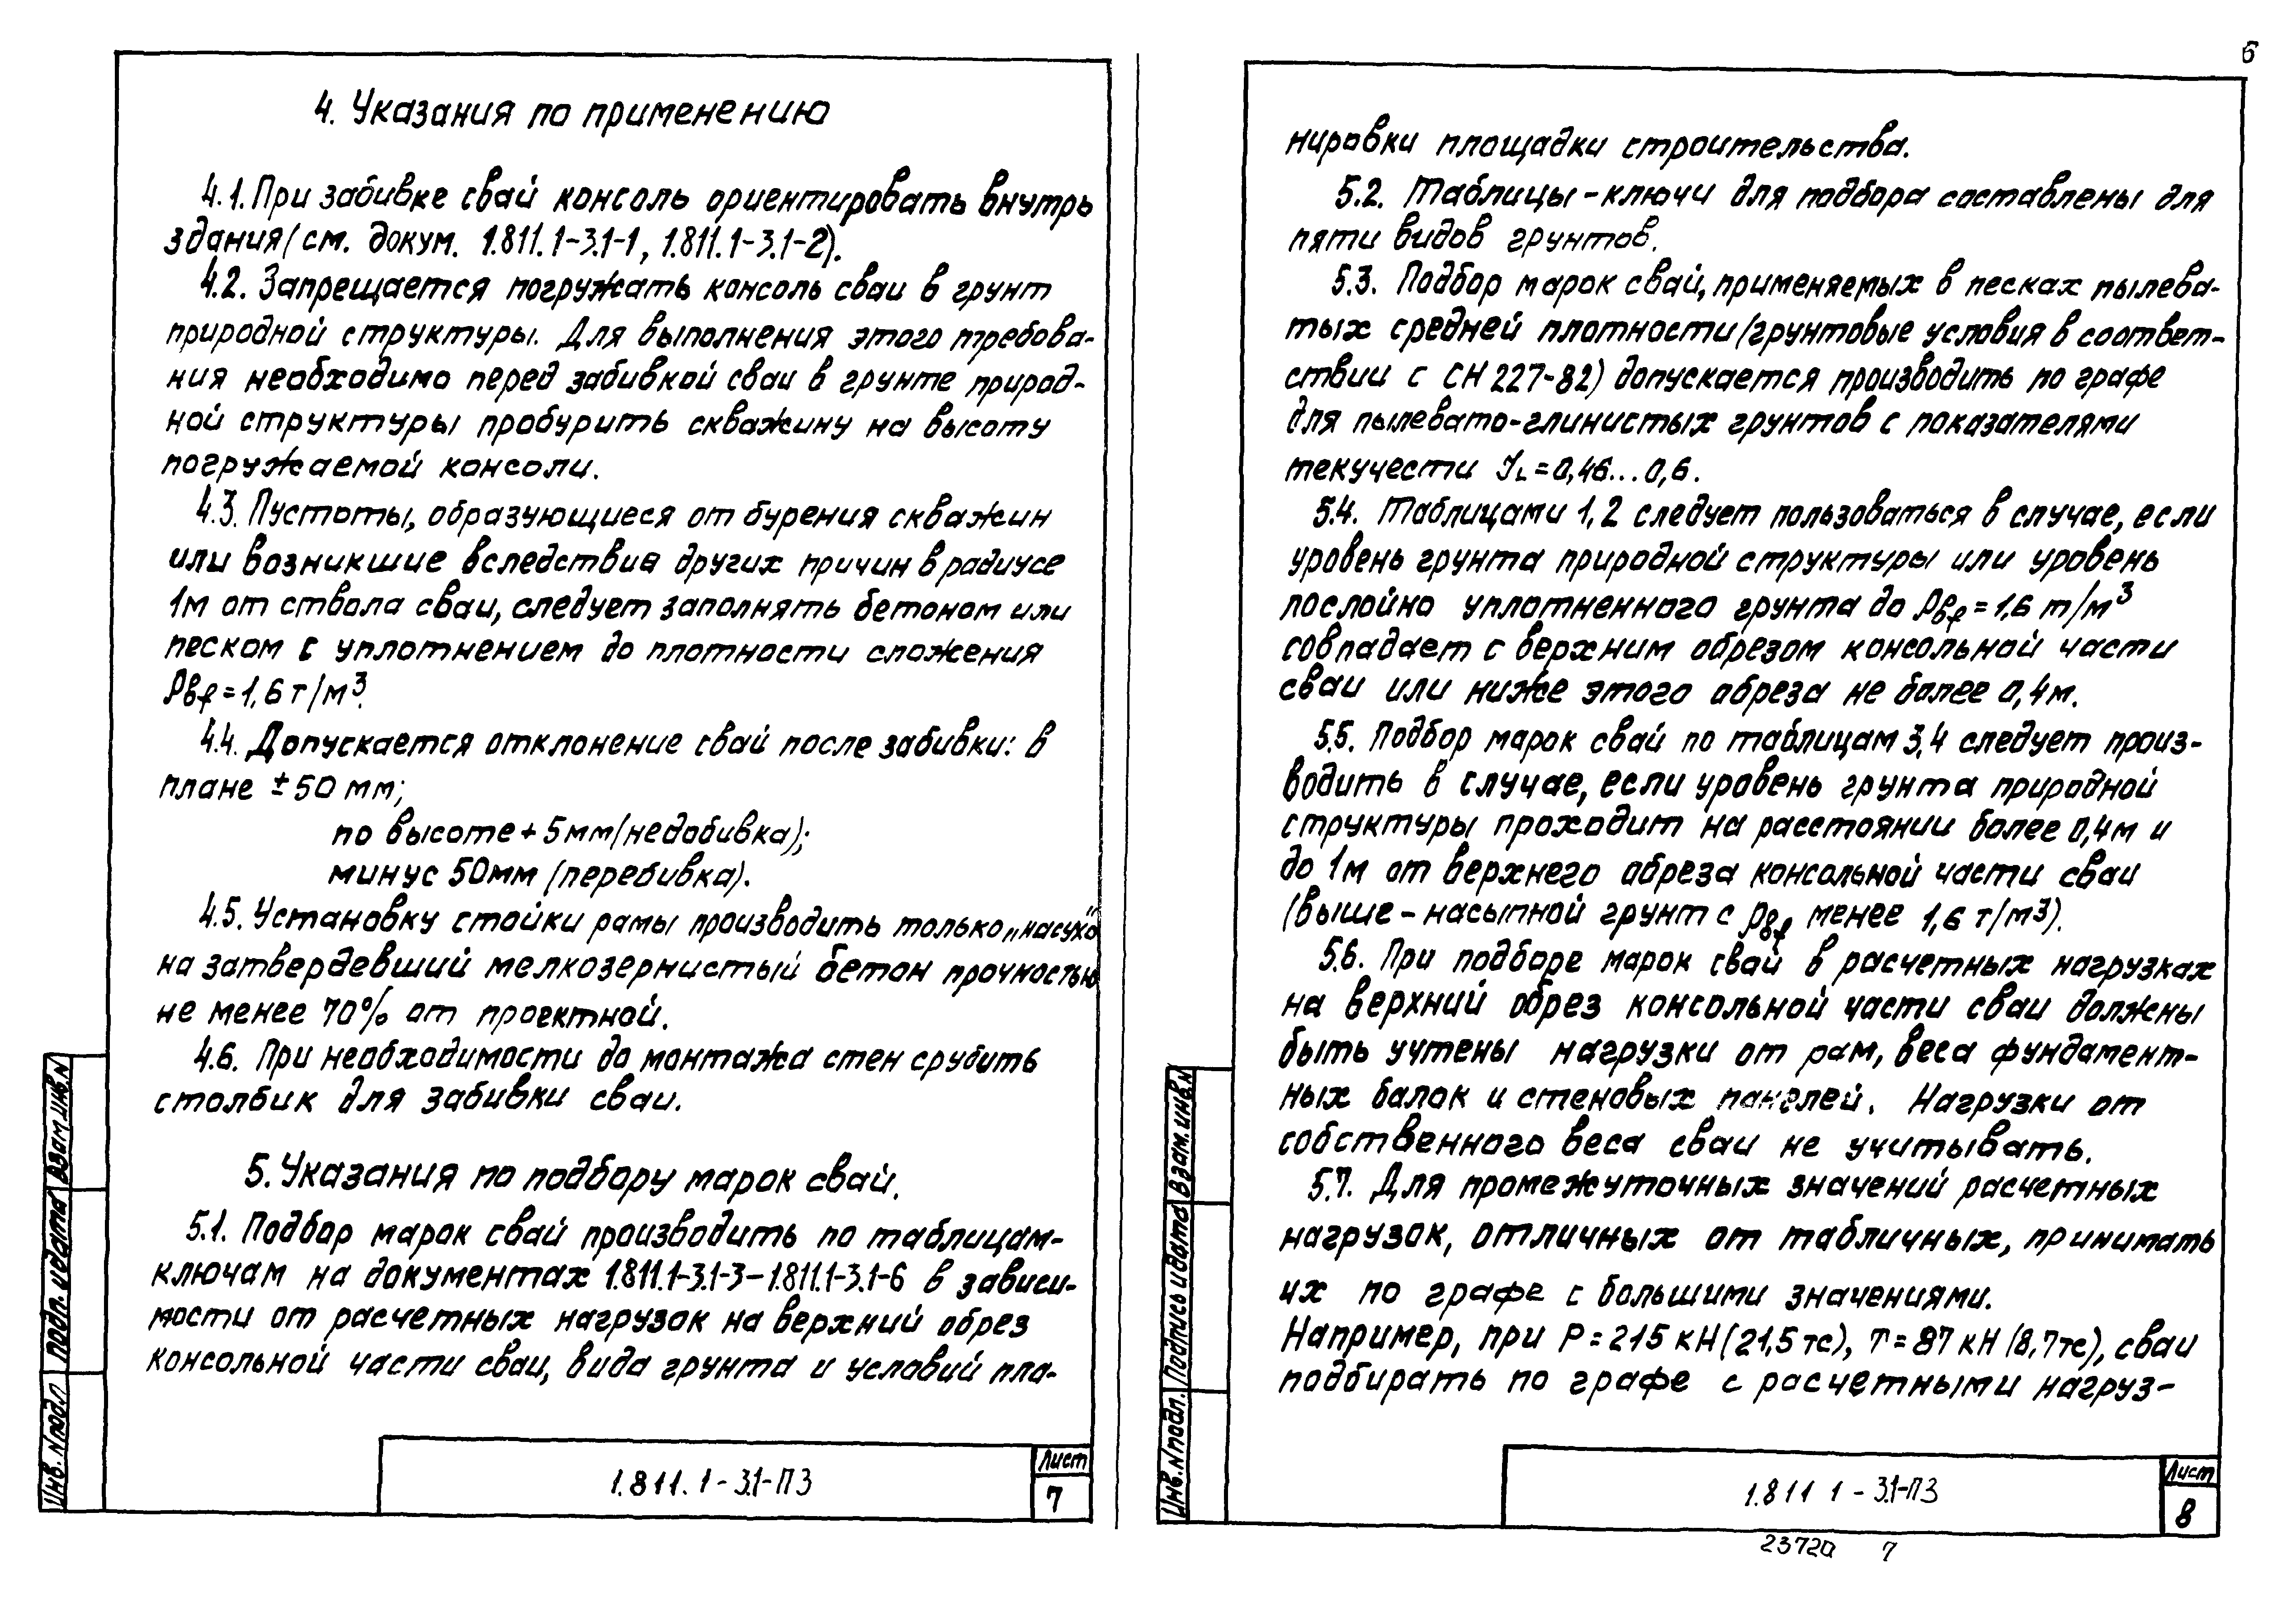 6
4. Указания по применению
4.1. При забивке свай консоль ориентировать внутрь
здания (см. докум. 1.811.1-3.1-1, 1.811.1-3.1-2).
4.2. Запрещается погружать консоль сваи в грунт
природной структуры. Для выполнения этого требова-
ния необходимо перед забивкой сваи в грунте природ-
ной структуры пробурить скважину на высоту
погружаемой консоли.
4.3. Пустоты, образующиеся от бурения скважин
или возникшие вследствие других причин в радиусе
1м от ствола сваи, следует заполнять бетоном или
песком с уплотнением до плотности сложения
ρвf = 1,6 т/м³.
4.4. Допускается отклонение свай после забивки: в
плане ±50 мм;
по высоте + 5мм (недобивка);
минус 50мм (перебивка).
4.5. Установку стойки рамы производить только „насухо“
на затвердевший мелкозернистый бетон прочностью
не менее 70% от проектной.
4.6. При необходимости до монтажа стен срубить
столбик для забивки сваи.
5. Указания по подбору марок свай.
5.1. Подбор марок свай производить по таблицам-
ключам на документах 1.811.1-3.1-3-1.811.1-3.1-6 в зависи-
мости от расчетных нагрузок на верхний обрез
консольной части сваи, вида грунта и условий пла-
Взам. инв. N
Подп. и дата
Инв. N подл
1.811.1-3.1-ПЗ
Лист
7
нировки площадки строительства.
5.2. Таблицы-ключи для подбора составлены для
пяти видов грунтов.
5.3. Подбор марок свай, применяемых в песках пылева-
тых средней плотности (грунтовые условия в соответ-
ствии с СН 227-82) допускается производить по графе
для пылевато-глинистых грунтов с показателями
текучести JL = 0,46...0,6.
5.4. Таблицами 1,2 следует пользоваться в случае, если
уровень грунта природной структуры или уровень
послойно уплотненного грунта до ρвf = 1,6 т/м³
совпадает с верхним обрезом консольной части
сваи или ниже этого обреза не более 0,4м.
5.5. Подбор марок свай по таблицам 3,4 следует произ-
водить в случае, если уровень грунта природной
структуры проходит на расстоянии более 0,4м и
до 1м от верхнего обреза консольной части сваи
(выше - насыпной грунт с ρвf менее 1,6 т/м³).
5.6. При подборе марок свай в расчетных нагрузках
на верхний обрез консольной части сваи должны
быть учтены нагрузки от рам, веса фундамент-
ных балок и стеновых панелей. Нагрузки от
собственного веса сваи не учитывать.
5.7. Для промежуточных значений расчетных
нагрузок, отличных от табличных, принимать
их по графе с большими значениями.
Например, при Р = 215 кН (21,5 тс), Т = 87 кН (8,7тс), сваи
подбирать по графе с расчетными нагруз-
Взам. инв. N
Подпись и дата
Инв. N подл.
1.811 1 - 3.1-ПЗ
Лист
8
23720 7